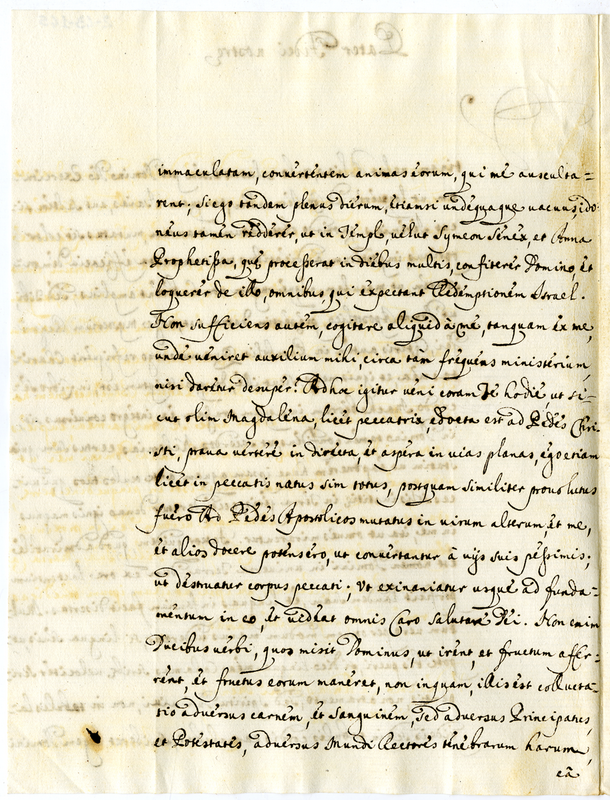 immaculatam, convertentem animas eorum, qui me ausculta=
rent; sic ego tandem plenus dierum, etiamsi undequaque vacuus, ido
neus tamen redderer, ut in Templo, velut Symeon Senex, et Anna
Prophetissa, quę processerat in diebus multis, confiterer Domino, et
loquerer de illo, omnibus, qui expectant Redemptionem Israel.
Non sufficiens autem, cogitare aliquid à me, tanquam ex me,
unde veniret auxilium mihi, circa tam frequens ministerium,
nisi daretur desuper? Ad hoc igitur veni coram Te hodie ut si=
cut olim Magdalena, licet peccatrix, edocta est ad Pedes Chri
sti, prava vertere in directa, et aspera in vias planas, ego etiam
licet in peccatis natus sim totus, postquam similiter provolutus
fuero Ad Pedes Apostolicos mutatus in virum alterum et me,
et alios docere potens ero, ut convertantur à vijs suis pessimis;
ut destruatur corpus peccati; Ut exinaniatur usque ad funda=
mentum in eo, et videat omnis Caro salutare Dei. Non enim
Ducibus verbi, quos misit Dominus, ut irent, et fructum affer=
rent, et fructus eorum maneret, non inquam, illis est colluctá=
tio adversus carnem, et Sanguinem, sed adversus Principatus,
et Potestates, adversus Mundi Rectores tenebrarum harum,
eã